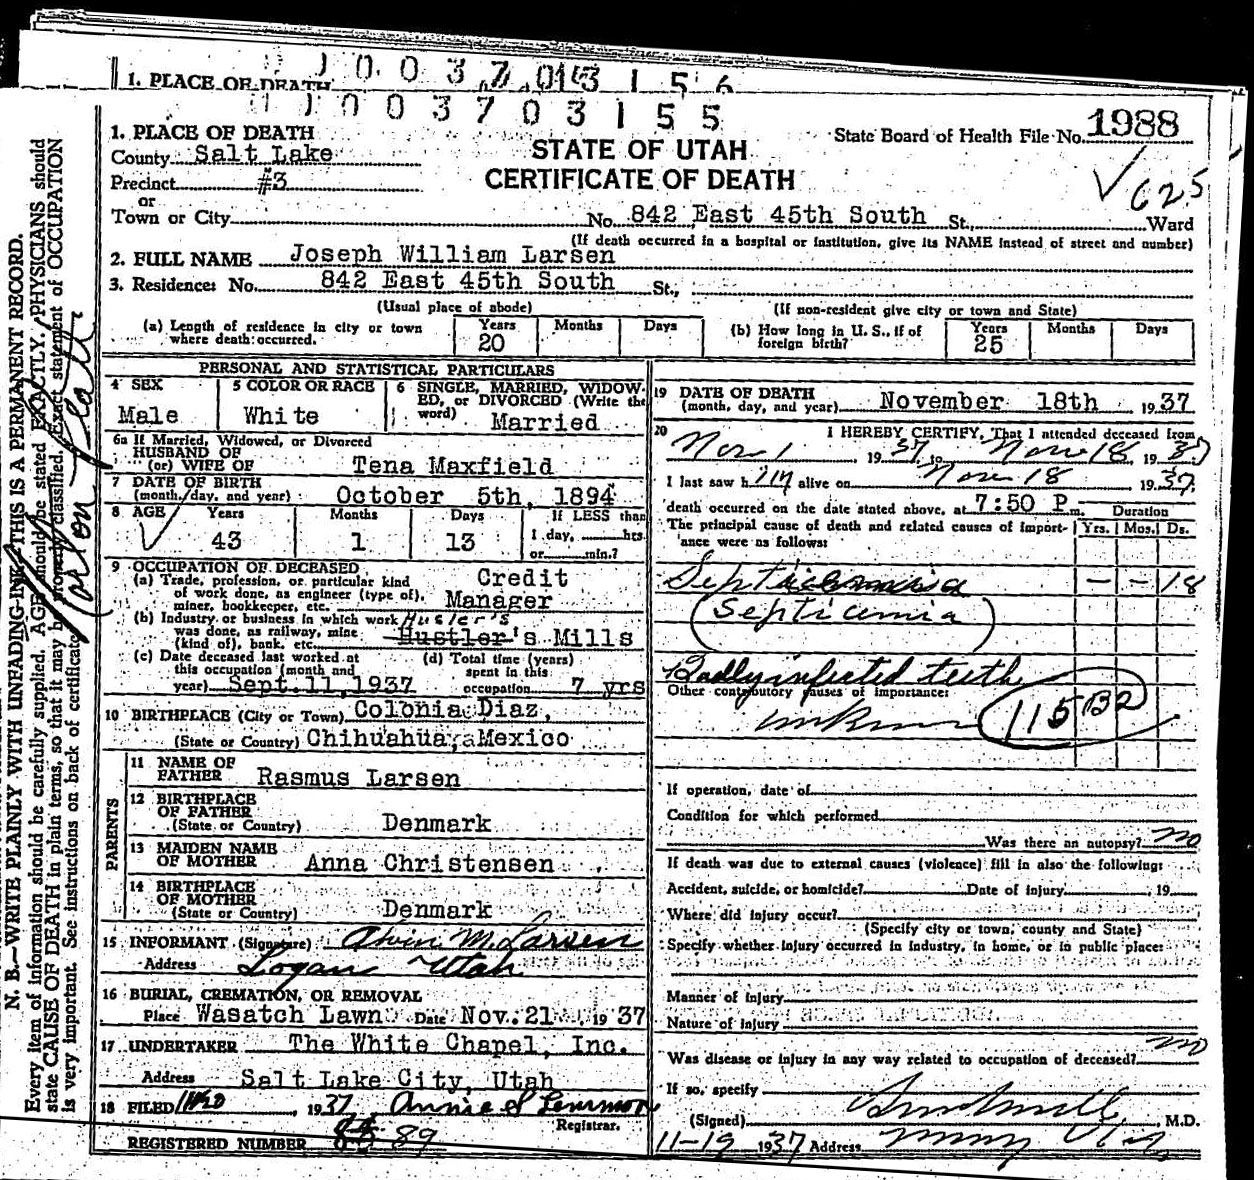 1. PLACE OF DEATH
1 0 0 3 7 0 3 1 5 5
1. PLACE OF DEATH
County Salt Lake
Precinct #3
or
Town or City
STATE OF UTAH
CERTIFICATE OF DEATH
State Board of Health File No. 1988
625
No. 842 East 45th South St., Ward
(If death occurred in a hospital or institution, give its NAME instead of street and number)
2. FULL NAME Joseph William Larsen
3. Residence: No. 842 East 45th South St.,
(Usual place of abode) (If non-resident give city or town and State)
(a) Length of residence in city or town where death occurred. Years 20 Months Days
(b) How long in U. S., if of foreign birth? Years 25 Months Days
PERSONAL AND STATISTICAL PARTICULARS
4 SEX Male
5 COLOR OR RACE White
6 SINGLE, MARRIED, WIDOWED, or DIVORCED (Write the word) Married
6a If Married, Widowed, or Divorced
HUSBAND OF
(or) WIFE OF Tena Maxfield
7 DATE OF BIRTH
(month, day, and year) October 5th, 1894
8 AGE Years 43 Months 1 Days 13
If LESS than
1 day, hrs.
or min.?
9 OCCUPATION OF DECEASED
(a) Trade, profession, or particular kind of work done, as engineer (type of), miner, bookkeeper, etc. Credit Manager
(b) Industry or business in which work was done, as railway, mine (kind of), bank, etc. Husler's Hustler's Mills
(c) Date deceased last worked at this occupation (month and year) Sept. 11, 1937
(d) Total time (years) spent in this occupation 7 yrs
10 BIRTHPLACE (City or Town) Colonia Diaz,
(State or Country) Chihuahua, Mexico
PARENTS
11 NAME OF FATHER Rasmus Larsen
12 BIRTHPLACE OF FATHER
(State or Country) Denmark
13 MAIDEN NAME OF MOTHER Anna Christensen
14 BIRTHPLACE OF MOTHER
(State or Country) Denmark
15 INFORMANT (Signature) Alvin M. Larsen
Address Logan Utah
16 BURIAL, CREMATION, OR REMOVAL
Place Wasatch Lawn Date Nov. 21 1937
17 UNDERTAKER The White Chapel, Inc.
Address Salt Lake City, Utah
18 FILED 1937
Registrar.
REGISTERED NUMBER 89
19 DATE OF DEATH
(month, day, and year) November 18th 1937
20 I HEREBY CERTIFY, That I attended deceased from
Nov 1 1937 to Nov 18, 1937
I last saw him alive on Nov 18 1937
death occurred on the date stated above, at 7:50 P.m. Duration
The principal cause of death and related causes of importance were as follows: Yrs. Mos. Ds.
— — 18
(Septicemia)
Badly infected teeth
Other contributory causes of importance:
115 B2
If operation, date of
Condition for which performed
Was there an autopsy? no
If death was due to external causes (violence) fill in also the following:
Accident, suicide, or homicide? Date of injury 19
Where did injury occur?
(Specify city or town, county and State)
Specify whether injury occurred in industry, in home, or in public place:
Manner of Injury
Nature of Injury
Was disease or injury in any way related to occupation of deceased? no
If so, specify
(Signed) M.D.
11-19 1937 Address
N. B.—WRITE PLAINLY WITH UNFADING INK—THIS IS A PERMANENT RECORD.
Every item of information should be carefully supplied. AGE should be stated EXACTLY. PHYSICIANS should
state CAUSE OF DEATH in plain terms, so that it may be properly classified. Exact statement of OCCUPATION
is very important. See instructions on back of certificate.